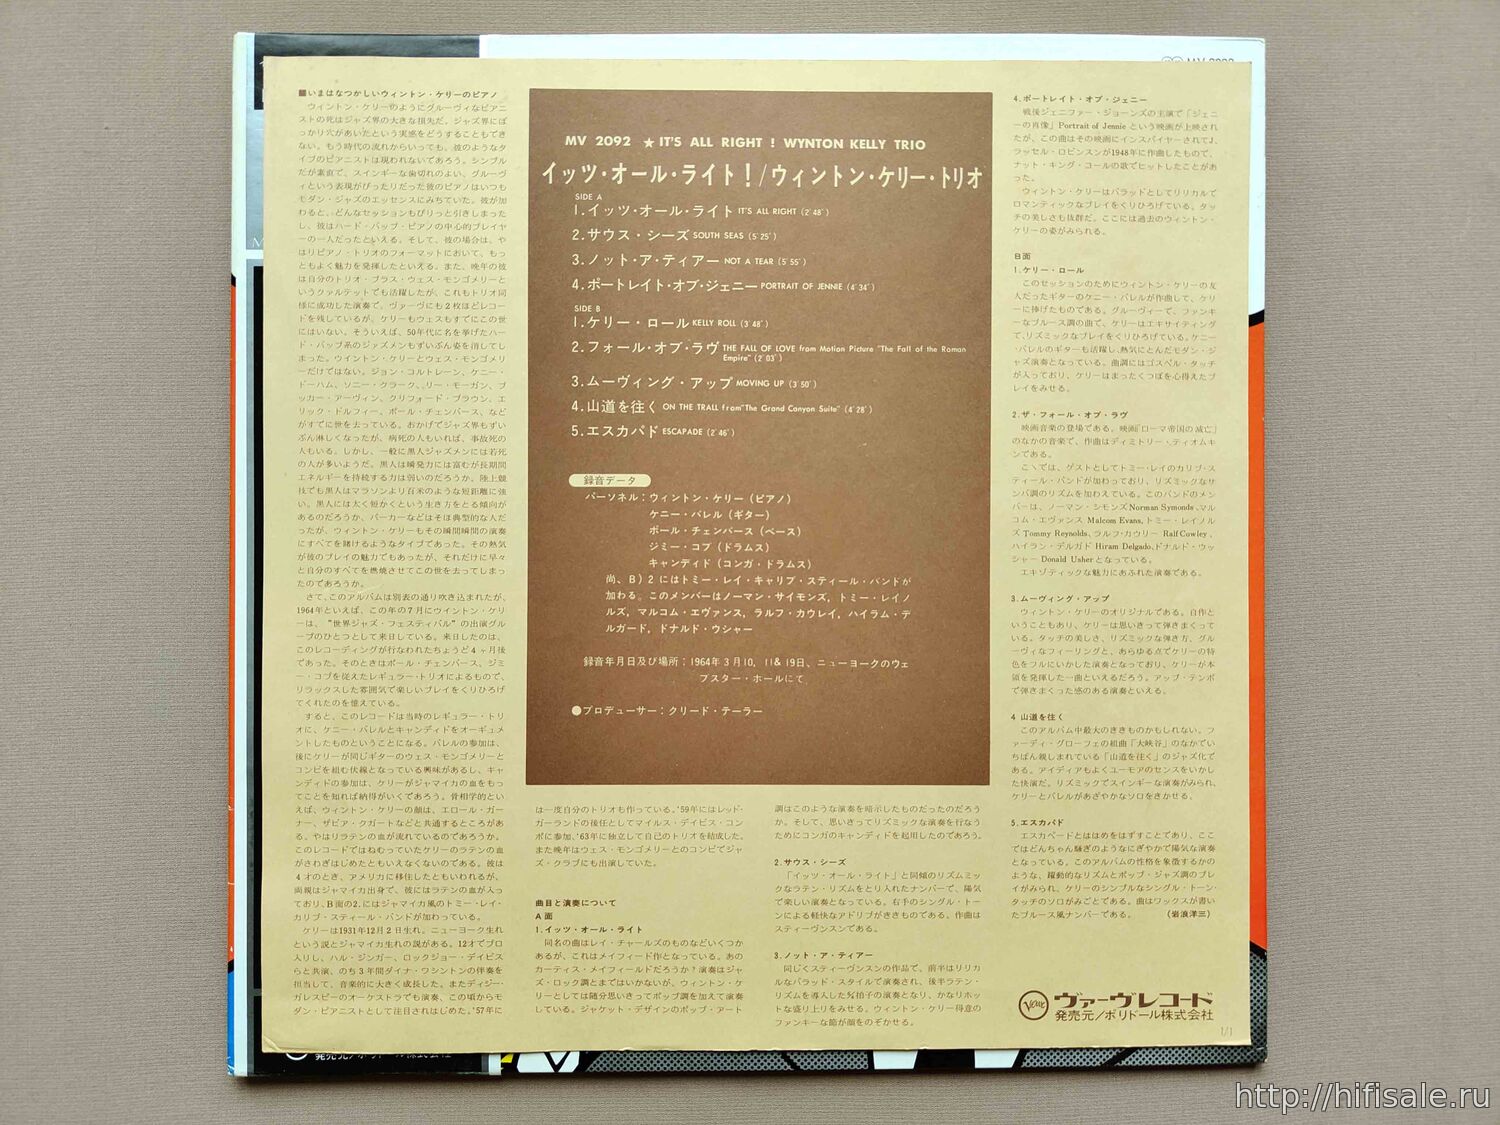 ■いまはなつかしいウィントン・ケリーのピアノ
ウィントン・ケリーのようにグルーヴィなピアニ
ストの死はジャズ界の大きな損失だ。ジャズ界にぽ
っかり穴があいたという実感をどうすることもでき
ない。もう時代の流れからいっても、彼のようなタ
イプのピアニストは現われないであろう。シンプル
だが素直で、スインギーな歯切れのよい、グルーヴ
ィという表現がぴったりだった彼のピアノはいつも
モダン・ジャズのエッセンスにみちていた。彼が加
わると、どんなセッションもぴりっと引きしまった
し、彼はハード・バップ・ピアノの中心的プレイヤ
ーの一人だったといえる。そして、彼の場合は、や
はりピアノ・トリオのフォーマットにおいて、もっ
ともよく魅力を発揮したといえる。また、晩年の彼
は自分のトリオ・プラス・ウェス・モンゴメリーと
いうクァルテットでも活躍したが、これもトリオ同
様に成功した演奏で、ヴァーヴにも2枚ほどレコー
ドを残しているが、ケリーもウェスもすでにこの世
にはいない。そういえば、50年代に名を挙げたハー
ド・バップ系のジャズメンもずいぶん姿を消してし
まった。ウイントン・ケリーとウェス・モンゴメリ
ーだけではない。ジョン・コルトレーン、ケニー・
ドーハム、ソニー・クラーク、リー・モーガン、ブ
ッカー・アーヴィン、クリフォード・ブラウン、エ
リック・ドルフィー、ポール・チェンバース、など
がすでに世を去っている。おかげでジャズ界もずい
ぶん淋しくなったが、病死の人もいれば、事故死の
人もいる。しかし、一般に黒人ジャズメンには若死
の人が多いようだ。黒人は瞬発力には富むが長期間
エネルギーを持続する力は弱いのだろうか。陸上競
技でも黒人はマラソンより百米のような短距離に強
い。黒人には太く短かくという生き方をとる傾向が
あるのだろうか、パーカーなどはそほ典型的な人だ
ったが、ウィントン・ケリーもその瞬間瞬間の演奏
にすべてを賭けるようなタイプであった。その熱気
が彼のプレイの魅力でもあったが、それだけに早々
と自分のすべてを燃焼させてこの世を去ってしまっ
たのであろうか。
さて、このアルバムは別表の通り吹き込まれたが、
1964年といえば、この年の7月にウイントン・ケリ
ーは、“世界ジャズ・フェスティバル”の出演グル
ープのひとつとして来日している。来日したのは、
このレコーディングが行なわれたちょうど4ヶ月後
であった。そのときはポール・チェンバース、ジミ
ー・コブを従えたレギュラー・トリオによるもので、
リラックスした雰囲気で楽しいプレイをくりひろげ
てくれたのを憶えている。
すると、このレコードは当時のレギュラー・トリ
オに、ケニー・バレルとキャンディドをオーギュメ
ントしたものということになる。バレルの参加は、
後にケリーが同じギターのウェス・モンゴメリーと
コンビを組む伏線となっている興味があるし、キャ
ンディドの参加は、ケリーがジャマイカの血をもっ
てことを知れば納得がいくであろう。骨相学的とい
えば、ウィントン・ケリーの顔は、エロール・ガー
ナー、ザビア・クガートなどと共通するところがあ
る。やはりラテンの血が流れているのであろうか。
このレコードではねむっていたケリーのラテンの血
がさわぎはじめたともいえなくないのである。彼は
4才のとき、アメリカに移住したともいわれるが、
両親はジャマイカ出身で、彼にはラテンの血が入っ
ており、B面の2.にはジャマイカ風のトミー・レイ・
カリブ・スティール・バンドが加わっている。
ケリーは1931年12月2日生れ。ニューヨーク生れ
という説とジャマイカ生れの説がある。12才でプロ
入りし、ハル・ジンガー、ロックジョー・デイビス
らと共演、のち3年間ダイナ・ワシントンの伴奏を
担当して、音楽的に大きく成長した。またディジー・
ガレスピーのオーケストラでも演奏、この頃からモ
ダン・ピアニストとして注目されはじめた。'57年に
は一度自分のトリオも作っている。'59年にはレッド・
ガーランドの後任としてマイルス・デイビス・コン
ボに参加、'63年に独立して自己のトリオを結成した。
また晩年はウェス・モンゴメリーとのコンビでジャ
ズ・クラブにも出演していた。
曲目と演奏について
A面
1.イッツ・オール・ライト
同名の曲はレイ・チャールズのものなどいくつか
あるが、これはメイフィード作となっている。あの
カーティス・メイフィールドだろうか?演奏はジャ
ズ・ロック調とまではいかないが、ウィントン・ケ
リーとしては随分思いきってポップ調を加えて演奏
している。ジャケット・デザインのポップ・アート
調はこのような演奏を暗示したものだったのだろう
か。そして、思いきってリズミックな演奏を行なう
ためにコンガのキャンディドを起用したのであろう。
2.サウス・シーズ
「イッツ・オール・ライト」と同傾のリズムミッ
クなラテン・リズムをとり入れたナンバーで、陽気
で楽しい演奏となっている。右手のシングル・トー
ンによる軽快なアドリブがききものである、作曲は
スティーヴンスンである。
3.ノット・ア・ティアー
同じくスティーヴンスンの作品で、前半はリリカ
ルなバラッド・スタイルで演奏され、後半ラテン・
リズムを導入した¾拍子の演奏となり、かなりホッ
トな盛り上りをみせる。ウィントン・ケリー得意の
ファンキーな節が顔をのぞかせる。
MV 2092 ★IT'S ALL RIGHT ! WYNTON KELLY TRIO
イッツ・オール・ライト!/ウィントン・ケリー・トリオ
SIDE A
1.イッツ・オール・ライト IT'S ALL RIGHT (2′48″)
2.サウス・シーズ SOUTH SEAS (5′25″)
3.ノット・ア・ティアー NOT A TEAR (5′55″)
4.ポートレイト・オブ・ジェニー PORTRAIT OF JENNIE (4′34″)
SIDE B
1.ケリー・ロール KELLY ROLL (3′48″)
2.フォール・オブ・ラヴ THE FALL OF LOVE from Motion Picture "The Fall of the Roman
Empire" (2′03″)
3.ムーヴィング・アップ MOVING UP (3′50″)
4.山道を往く ON THE TRALL from"The Grand Canyon Suite" (4′28″)
5.エスカパド ESCAPADE (2′46″)
録音データ
パーソネル:ウィントン・ケリー(ピアノ)
ケニー・バレル(ギター)
ポール・チェンバース(ベース)
ジミー・コブ(ドラムス)
キャンディド(コンガ・ドラムス)
尚、B)2にはトミー・レイ・キャリブ・スティール・バンドが
加わる。このメンバーはノーマン・サイモンズ,トミー・レイノ
ルズ,マルコム・エヴァンス,ラルフ・カウレイ,ハイラム・デ
ルガード,ドナルド・ウシャー
録音年月日及び場所:1964年3月10,11&19日、ニューヨークのウェ
ブスター・ホールにて
●プロデューサー:クリード・テーラー
4.ポートレイト・オブ・ジェニー
戦後ジェニファー・ジョーンズの主演で「ジェニ
ーの肖像」Portrait of Jennie という映画が上映され
たが、この曲はその映画にインスパイヤーされてJ.
ラッセル・ロビンスンが1948年に作曲したもので、
ナット・キング・コールの歌でヒットしたことがあ
った。
ウィントン・ケリーはバラッドとしてリリカルで
ロマンティックなプレイをくりひろげている。タッ
チの美しさも抜群だ。ここには過去のウィントン・
ケリーの姿がみられる。
B面
1.ケリー・ロール
このセッションのためにウィントン・ケリーの友
人だったギターのケニー・バレルが作曲して、ケリ
ーに捧げたものである。グルーヴィーで、ファンキ
ーなブルース調の曲で、ケリーはエキサイティング
で、リズミックなプレイをくりひろげている。ケニー
・バレルのギターも活躍し、熱気にとんだモダン・ジ
ャズ演奏となっている。曲調にはゴスペル・タッチ
が入っており、ケリーはまったくつぼを心得えたプ
レイをみせる。
2.ザ・フォール・オブ・ラヴ
映画音楽の登場である。映画「ローマ帝国の滅亡」
のなかの音楽で、作曲はディミトリー・ティオムキ
ンである。
こゝでは、ゲストとしてトミー・レイのカリブ・ス
ティール・バンドが加わっており、リズミックなサ
ンバ調のリズムを加えている。このバンドのメン
バーは、ノーマン・シモンズ Norman Symonds,マル
コム・エヴァンス Malcom Evans,トミー・レイノル
ズ Tommy Reynolds,ラルフ・カウリー Ralf Cowley,
ハイラン・デルガド Hiram Delgado,ドナルド・ウッ
シャー Donald Usherとなっている。
エキゾティックな魅力にあふれた演奏である。
3.ムーヴィング・アップ
ウィントン・ケリーのオリジナルである。自作と
いうこともあり、ケリーは思いきって弾きまくって
いる。タッチの美しさ、リズミックな弾き方、グル
ーヴィなフィーリングと、あらゆる点でケリーの特
色をフルにいかした演奏となっており、ケリーが本
領を発揮した一曲といえるだろう。アップ・テンポ
で弾きまくった感のある演奏といえる。
4 山道を往く
このアルバム中最大のききものかもしれない。フ
ァーディ・グローフェの組曲「大峡谷」のなかでい
ちばん親しまれている「山道を往く」のジャズ化で
ある。アイディアもよくユーモアのセンスをいかし
た快演だ。リズミックでスインギーな演奏がみられ、
ケリーとバレルがあざやかなソロをきかせる。
5.エスカパド
エスカペードとははめをはずすことであり、ここ
ではどんちゃん騒ぎのようなにぎやかで陽気な演奏
となっている。このアルバムの性格を象徴するかの
ような、躍動的なリズムとポップ・ジャズ調のプレ
イがみられ、ケリーのシンプルなシングル・トーン・
タッチのソロがみごとである。曲はワックスが書い
たブルース風ナンバーである。 (岩浪洋三)
Verve ヴァーヴレコード
発売元/ポリドール株式会社
1/1
http://hifisale.ru